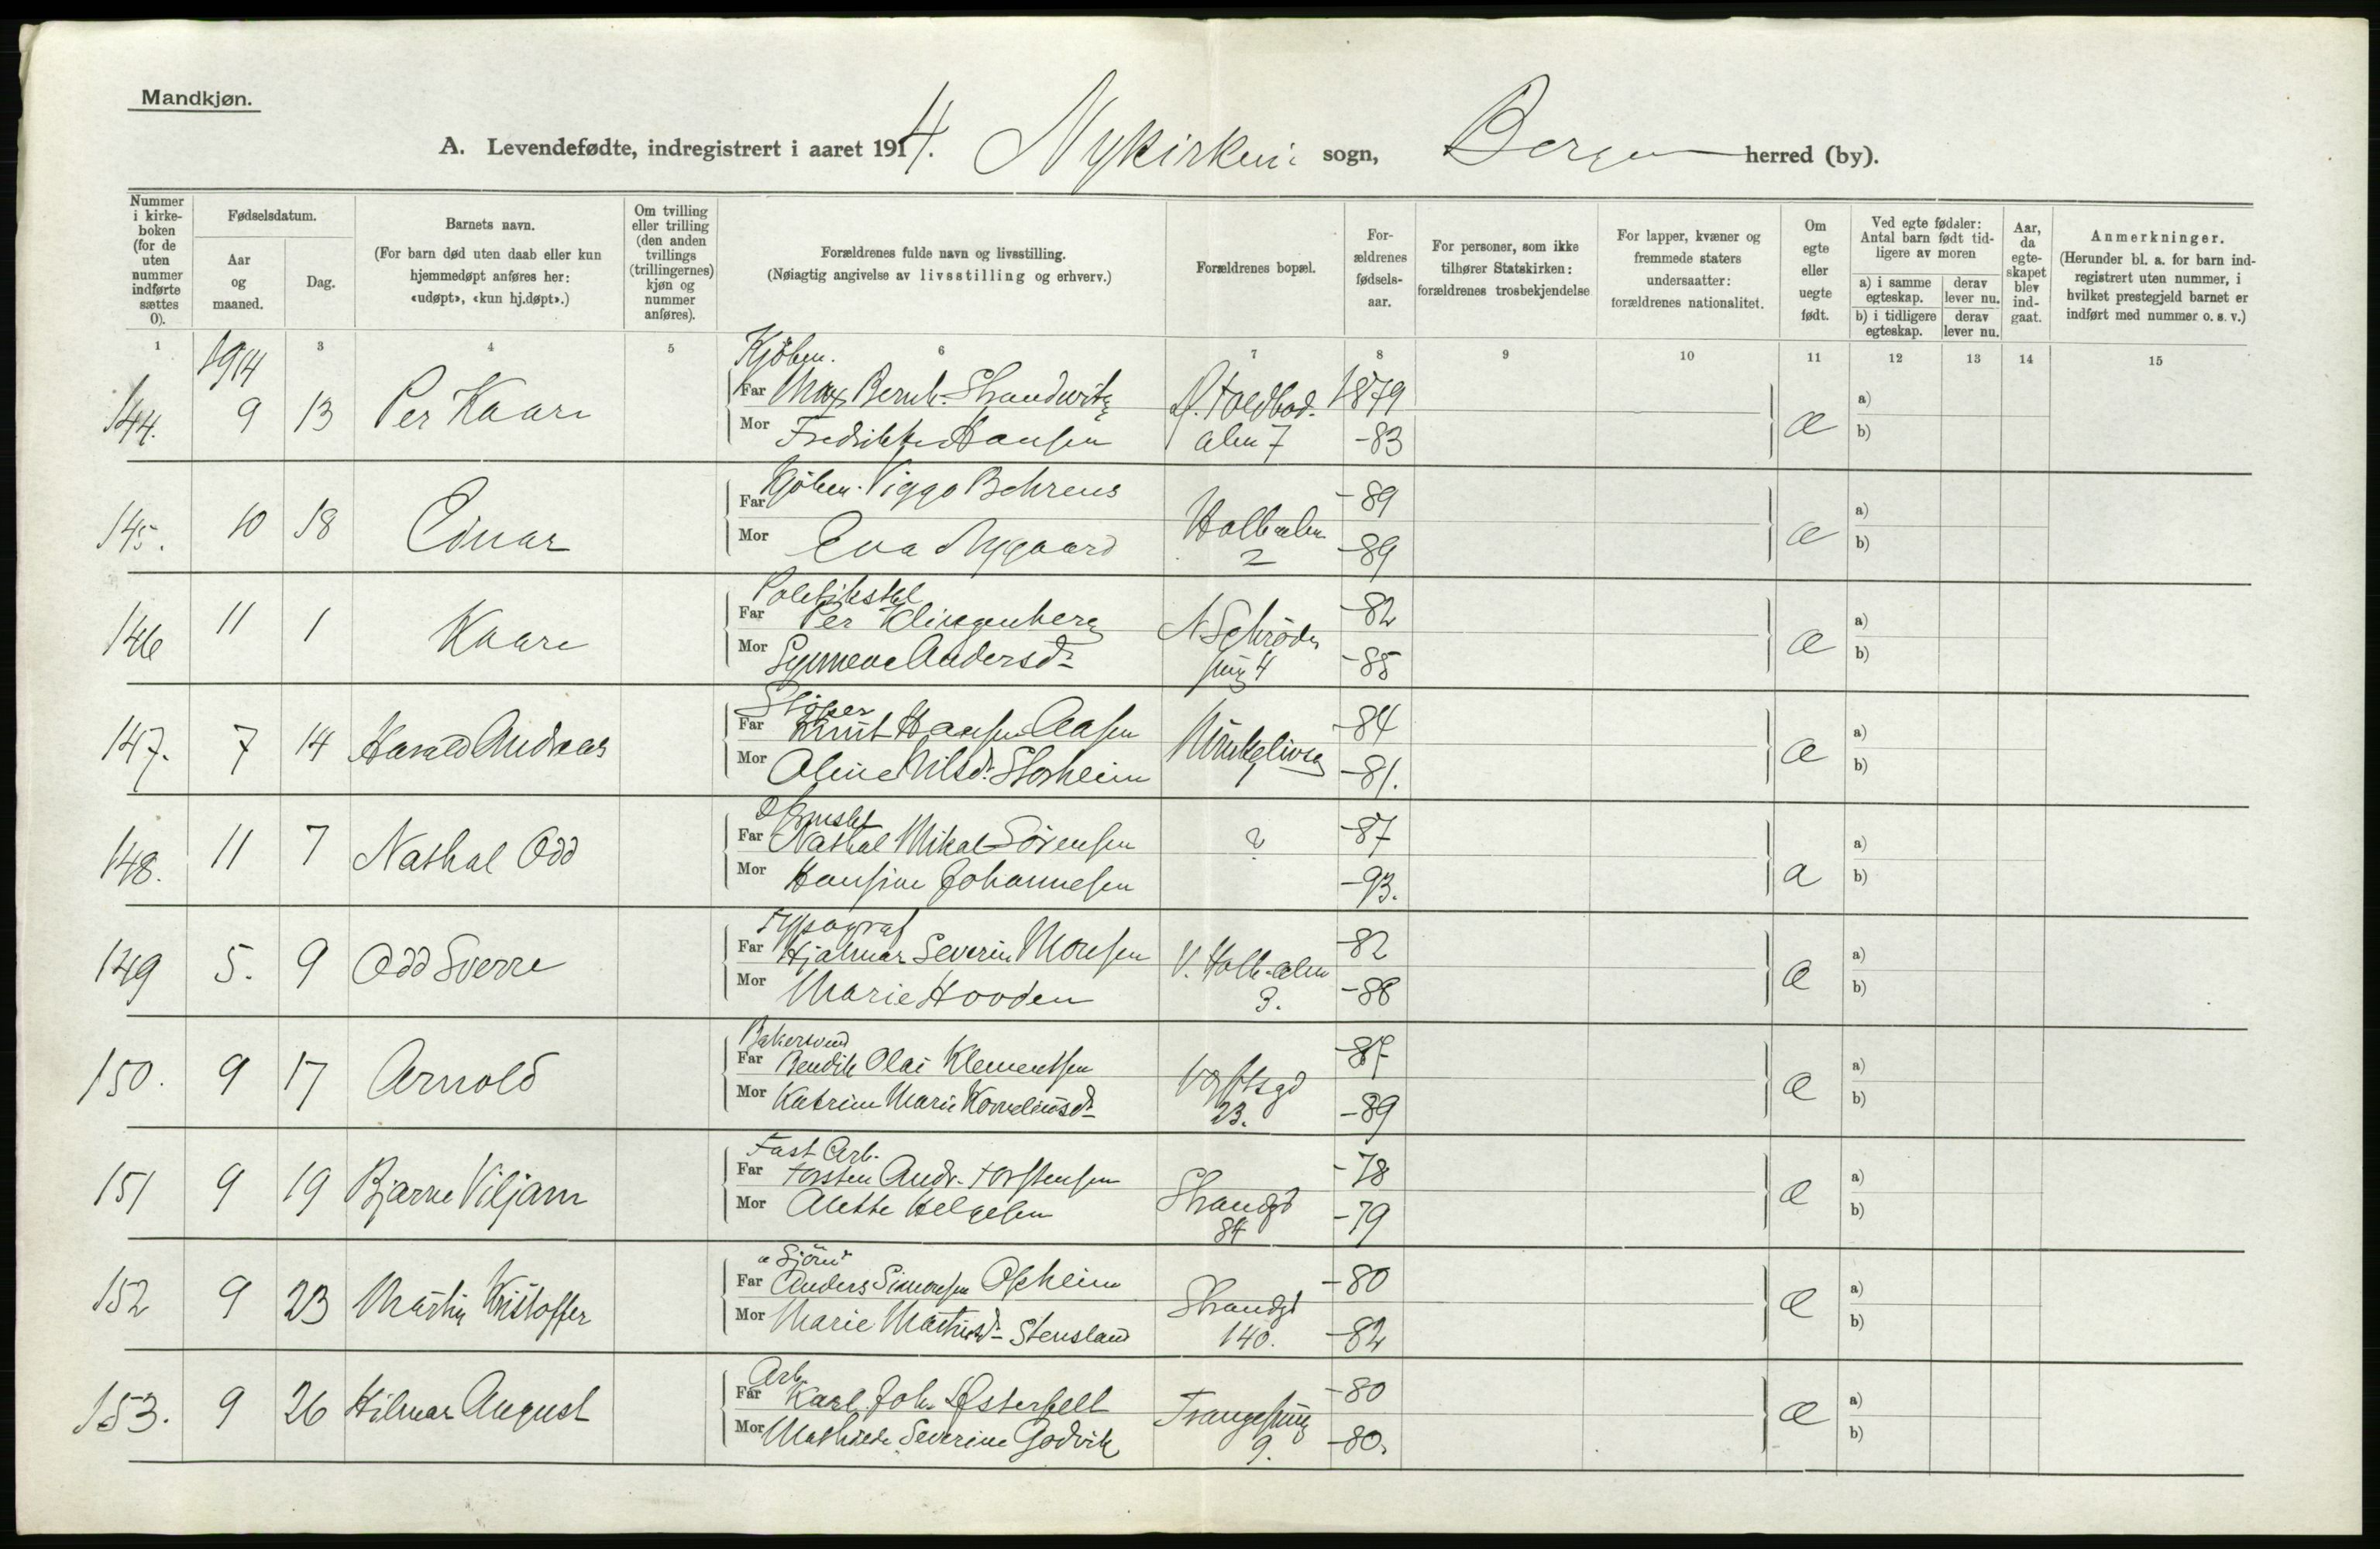 Mandkjøn.
A. Levendefødte, indregistrert i aaret 1914. Nykirken sogn, Bergen herred (by).
Nummer i kirke-boken (for de uten nummer indførte sættes 0).
Fødselsdatum.
Aar og maaned.
Dag.
Barnets navn.
(For barn død uten daab eller kun hjemmedøpt anføres her: «udøpt», «kun hj.døpt».)
Om tvilling eller trilling (den anden tvillings (trillingernes) kjøn og nummer anføres).
Forældrenes fulde navn og livsstilling.
(Nøiagtig angivelse av livsstilling og erhverv.)
Forældrenes bopæl.
For-ældrenes fødsels-aar.
For personer, som ikke tilhører Statskirken: forældrenes trosbekjendelse
For lapper, kvæner og fremmede staters undersaatter: forældrenes nationalitet.
Om egte eller uegte født.
Ved egte fødsler: Antal barn født tid-ligere av moren
a) i samme egteskap. derav lever nu.
b) i tidligere egteskap. derav lever nu.
Aar, da egte-skapet blev ind-gaat.
Anmerkninger.
(Herunder bl. a. for barn ind-registrert uten nummer, i hvilket prestegjeld barnet er indført med nummer o. s. v.)
1 3 4 5 6 7 8 9 10 11 12 13 14 15
1914
Kjøbm.
144. 9 13 Per Kaare Far Max Bernh. 1879 a)
Mor Fredrikke Hansen alm 7 -83 æ b)
145. 10 18 Einar Far Kjøbm. Viggo Behrens -89 a)
Mor Eva Nygaard 2 -89 æ b)
146 11 1 Kaare Far Per Klingenberg N Schrøder -82 a)
Mor Synneve Andersd. smg 4 -85 æ b)
147. 7 14 Harald Andreas Far Knut Hansen Aasen -84 a)
Mor Aline Nilsd. Storheim -81. æ b)
148. 11 7 Nathal Odd Far Nathal Mikal Sörensen ? -87 a)
Mor Hansine Johannesen -93. b)
Typograf
149 5. 9 Odd Sverre Far Hjalmar Severin Monsen V. Holb. alm -82 a)
Mor Marie Hovden 3. -88 æ b)
Bakersvend
150. 9 17 Arnold Far Bendik Olai Klementsen -87 a)
Mor Katrine Marie Korneliusd. 23. -89 æ b)
Fast Arb.
151 9 19 Bjarne Viljam Far Torsten Andr. Torstensen Strandgt -78 a)
Mor Alette Helgesen 84 -79 æ b)
Sjöm
152 9 23 Martin Kristoffer Far Anders Simonsen Opheim Strandgt -80 a)
Mor Marie Stensland 140. -82 æ b)
Arb.
153. 9 26 Hilmar August Far Karl Joh. Østerfelt Trangesmg -80 a)
Mor Mathilde Severine Godvik 9. -80. æ b)